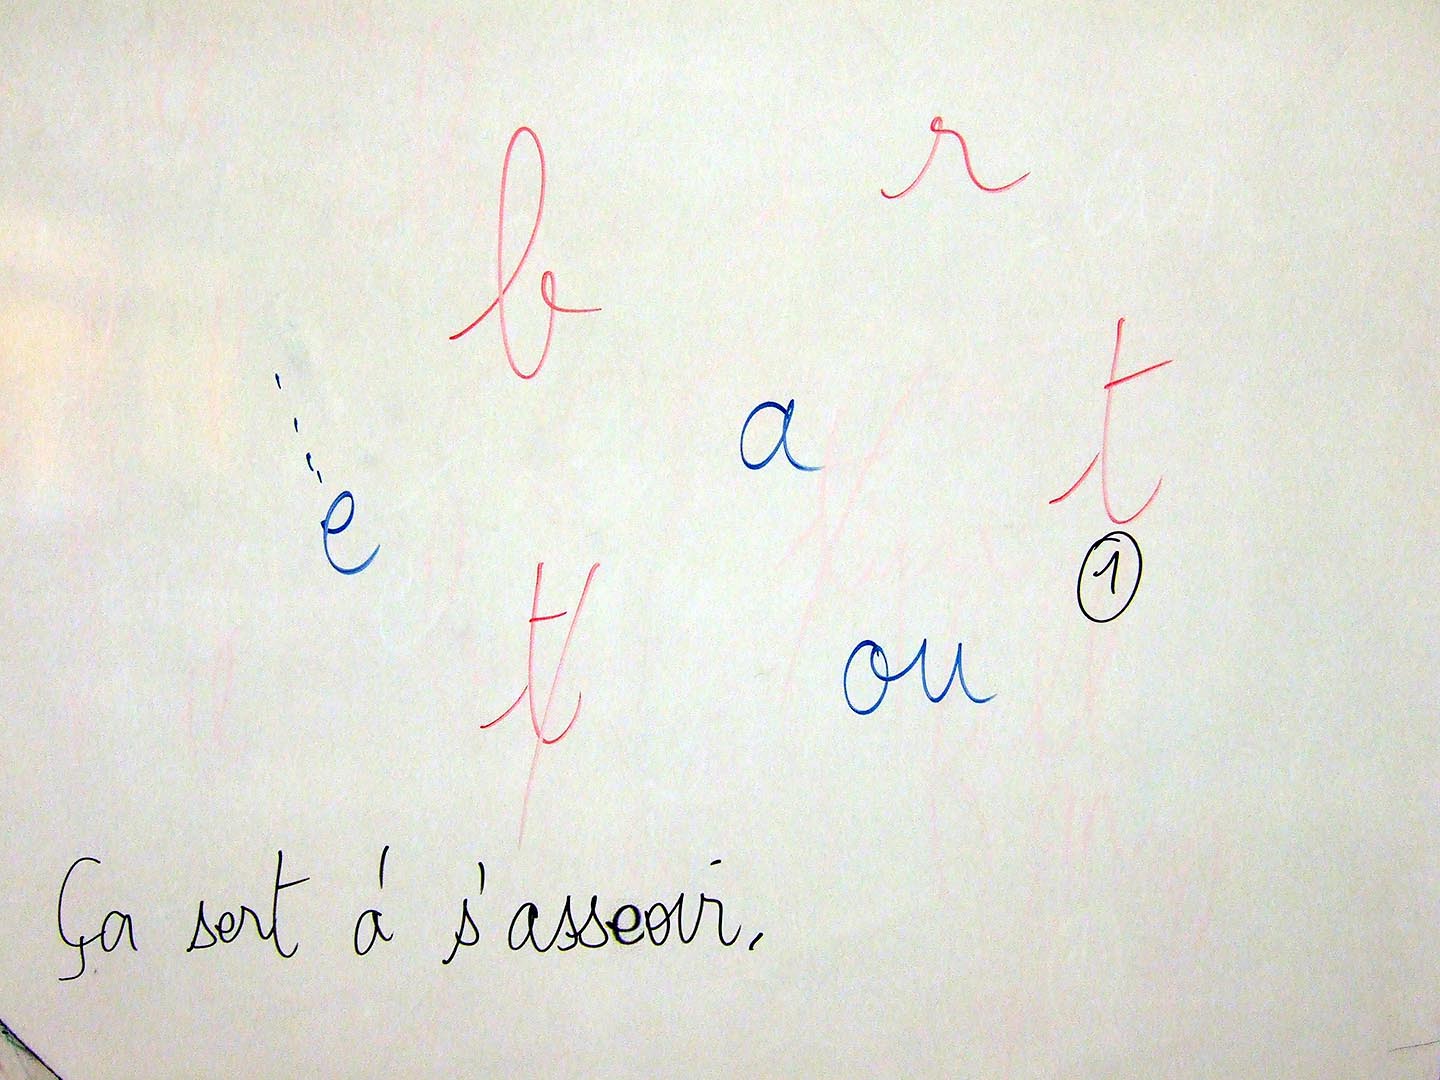 b r
e a t
t ou 1
Ça sert à s'asseoir.